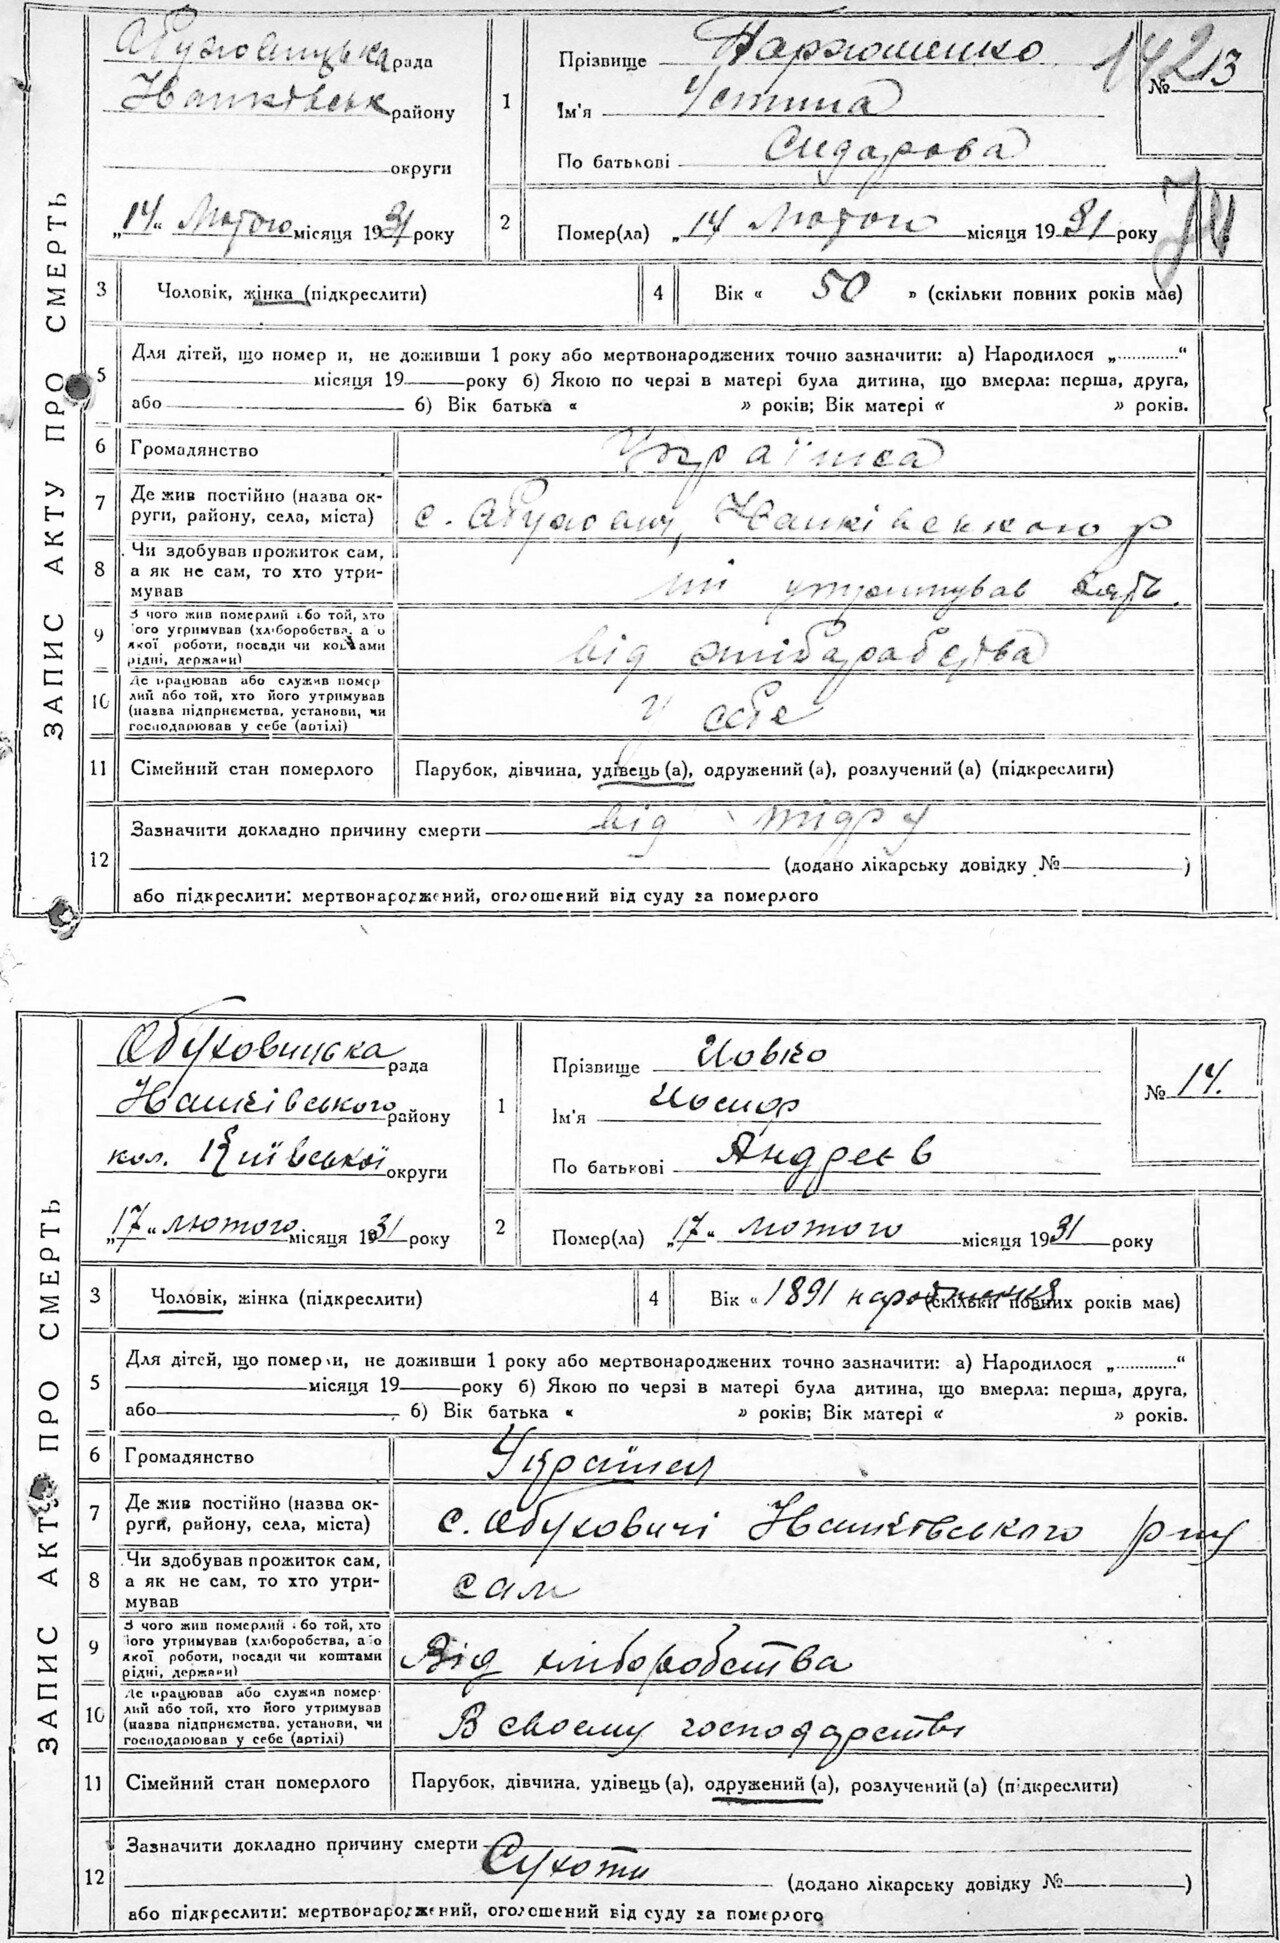 ЗАПИС АКТУ ПРО СМЕРТЬ
Обуховицька рада
Іванківськ району
округи
„14" Лютого місяця 1931 року
1
Прізвище Пархоменко
Ім'я Устина
По батькові Сидарова
142
№ 13
2
Помер(ла) „14 Лютого місяця 1931 року
3
Чоловік, жінка (підкреслити)
4
Вік « 50 » (скільки повних років має)
5
Для дітей, що помер и, не доживши 1 року або мертвонароджених точно зазначити: а) Народилося „............"
місяця 19 року б) Якою по черзі в матері була дитина, що вмерла: перша, друга,
або б) Вік батька « » років; Вік матері « » років.
6
Громадянство Українка
7
Де жив постійно (назва ок-
руги, району, села, міста) с. Обуховичі, Іванківського р
8
Чи здобував прожиток сам,
а як не сам, то хто утри-
мував ні утримував зять.
9
З чого жив померлий або той, хто
його утримував (хліборобства, або
якої роботи, посади чи коштами
рідні, держави) від хлібаробства
10
Де працював або служив помер
лий або той, хто його утримував
(назва підприємства, установи, чи
господарював у себе (артілі) у себе
11
Сімейний стан померлого Парубок, дівчина, удівець (а), одружений (а), розлучений (а) (підкреслити)
12
Зазначити докладно причину смерти від тидру
(додано лікарську довідку № )
або підкреслити: мертвонароджений, оголошений від суду за померлого
ЗАПИС АКТУ ПРО СМЕРТЬ
Обуховицька рада
Іванківського району
кол. Київської округи
„17" лютого місяця 1931 року
1
Прізвище Иовко
Ім'я Иосиф
По батькові Андреєв
№ 14.
2
Помер(ла) „17" лютого місяця 1931 року
3
Чоловік, жінка (підкреслити)
4
Вік « 1891 народження (скільки повних років має)
5
Для дітей, що помер и, не доживши 1 року або мертвонароджених точно зазначити: а) Народилося „............"
місяця 19 року б) Якою по черзі в матері була дитина, що вмерла: перша, друга,
або б) Вік батька « » років; Вік матері « » років.
6
Громадянство Українец
7
Де жив постійно (назва ок-
руги, району, села, міста) с. Обуховичі Іванківського р-ну
8
Чи здобував прожиток сам,
а як не сам, то хто утри-
мував сам
9
З чого жив померлий або той, хто
його утримував (хліборобства, або
якої роботи, посади чи коштами
рідні, держави) Від хліборобства
10
Де працював або служив помер-
лий або той, хто його утримував
(назва підприємства, установи, чи
господарював у себе (артілі) В своєму господарстві
11
Сімейний стан померлого Парубок, дівчина, удівець (а), одружений (а), розлучений (а) (підкреслити)
12
Зазначити докладно причину смерти Сухоти
(додано лікарську довідку № )
або підкреслити: мертвонароджений, оголошений від суду за померлого